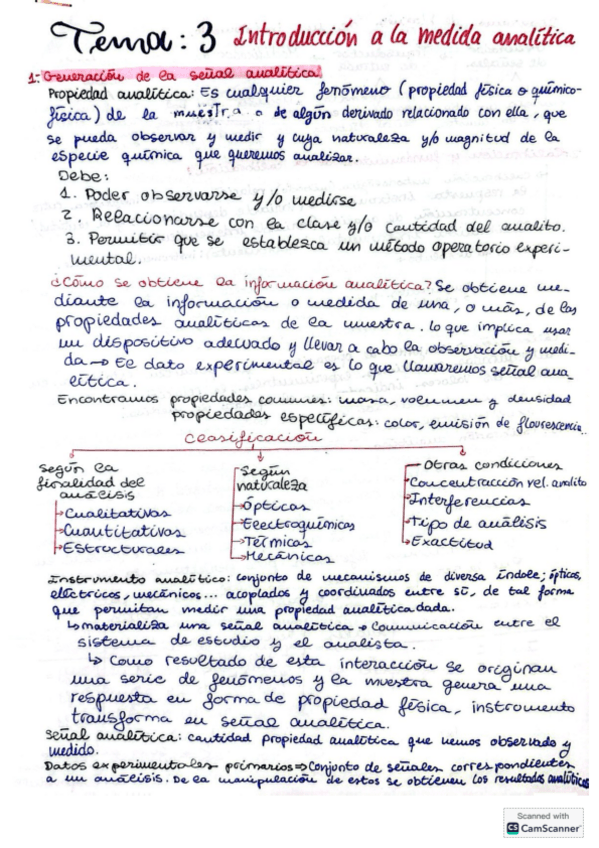 Tema: 3 Introducción a la medida analítica
1.- Generación de la señal analítica
Propiedad analítica: Es cualquier fenómeno (propiedad física o químico-
física) de la muestra o de algún derivado relacionado con ella, que
se pueda observar y medir y cuya naturaleza y/o magnitud de la
especie química que queremos analizar.
Debe:
1. Poder observarse y/o medirse
2. Relacionarse con la clase y/o cantidad del analito.
3. Permitir que se establezca un método operatorio experi-
mental.
¿Cómo se obtiene la información analítica? Se obtiene me-
diante la información o medida de una, o más, de las
propiedades analíticas de la muestra. lo que implica usar
un dispositivo adecuado y llevar a cabo la observación y medi-
da → El dato experimental es lo que llamaremos señal ana-
lítica.
Encontramos propiedades comunes: masa, volumen y densidad
propiedades específicas: color, emisión de flourescencia..
Clasificación
Según la
finalidad del
análisis
Cualitativas
Cuantitativas
Estructurales
Según
naturaleza
Ópticas
Electroquímicas
Térmicas
Mecánicas
Otras condiciones
Concentracción rel. analito
Interferencias
Tipo de análisis
Exactitud
Instrumento analítico: conjunto de mecanismos de diversa índole; ópticos,
eléctricos, mecánicos... acoplados y coordinados entre sí, de tal forma
que permitan medir una propiedad analítica dada.
↳ materializa una señal analítica → Comunicación entre el
sistema de estudio y el analista.
↳ Como resultado de esta interacción se originan
una serie de fenómenos y la muestra genera una
respuesta en forma de propiedad física, instrumento
transforma en señal analítica.
Señal analítica: cantidad propiedad analítica que hemos observado y
medido.
Datos experimentales primarios ⇒ Conjunto de señales correspondientes
a un análisis. De la manipulación de estos se obtienen los resultados analíticos
Scanned with
CS CamScanner